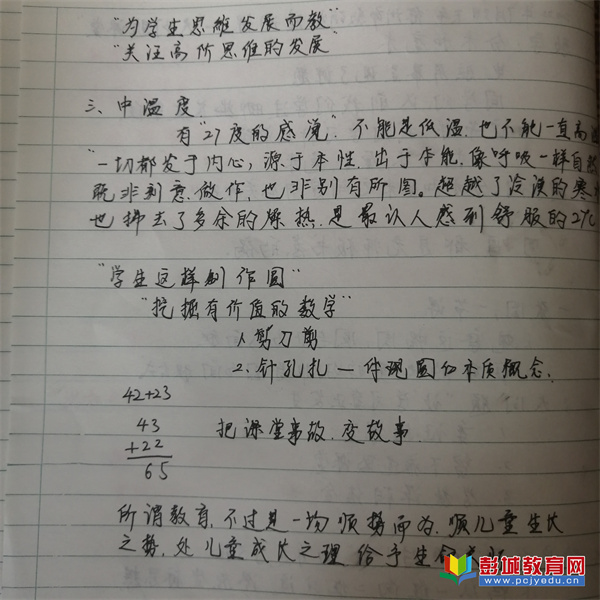 "为学生思维发展而教"
"关注高阶思维的发展"
三、中温度
有"27度的感觉"不能是低温,也不能一直高
"一切都发于内心,源于本性,出于本能,像呼吸一样自然
既非刻意做作,也非别有所图。超越了冷漠的寒
也拂去了多余的燥热,是最让人感到舒服的27℃
"学生这样创作圆"
"挖掘有价值的数学"
1.剪刀剪
2.针孔扎—体现圆的本质概念.
42+23
43
+22
65
把课堂事故,变故事.
所谓教育,不过是一场顺势而为,顺儿童生长
之势,处儿童成长之理给予生命
彭城教育网
www.pcjyedu.cn